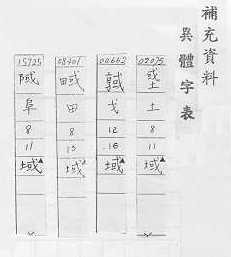 補充資料
異體字表
02075
土
8
11
域▲
戈
12
16
域▲
田
8
13
域▲
15925
阜
8
11
域▲